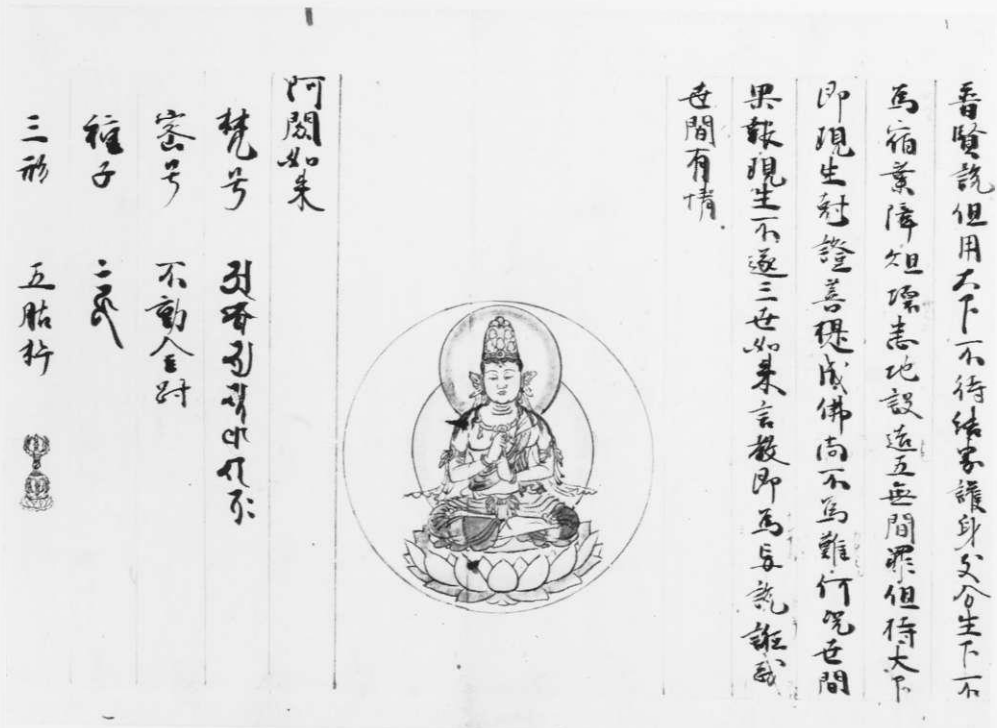 普賢說但用大下不待結界護身文分生下不
為宿業障 壞恚地設造五無間罪但待大下
即現生剋證菩提成佛尚不為難何況世間
果報現生不遂三世如來言教即為妄說誑
世間有情
阿閦如來
梵号
密号 不動金剛
種子
三形 五股杵